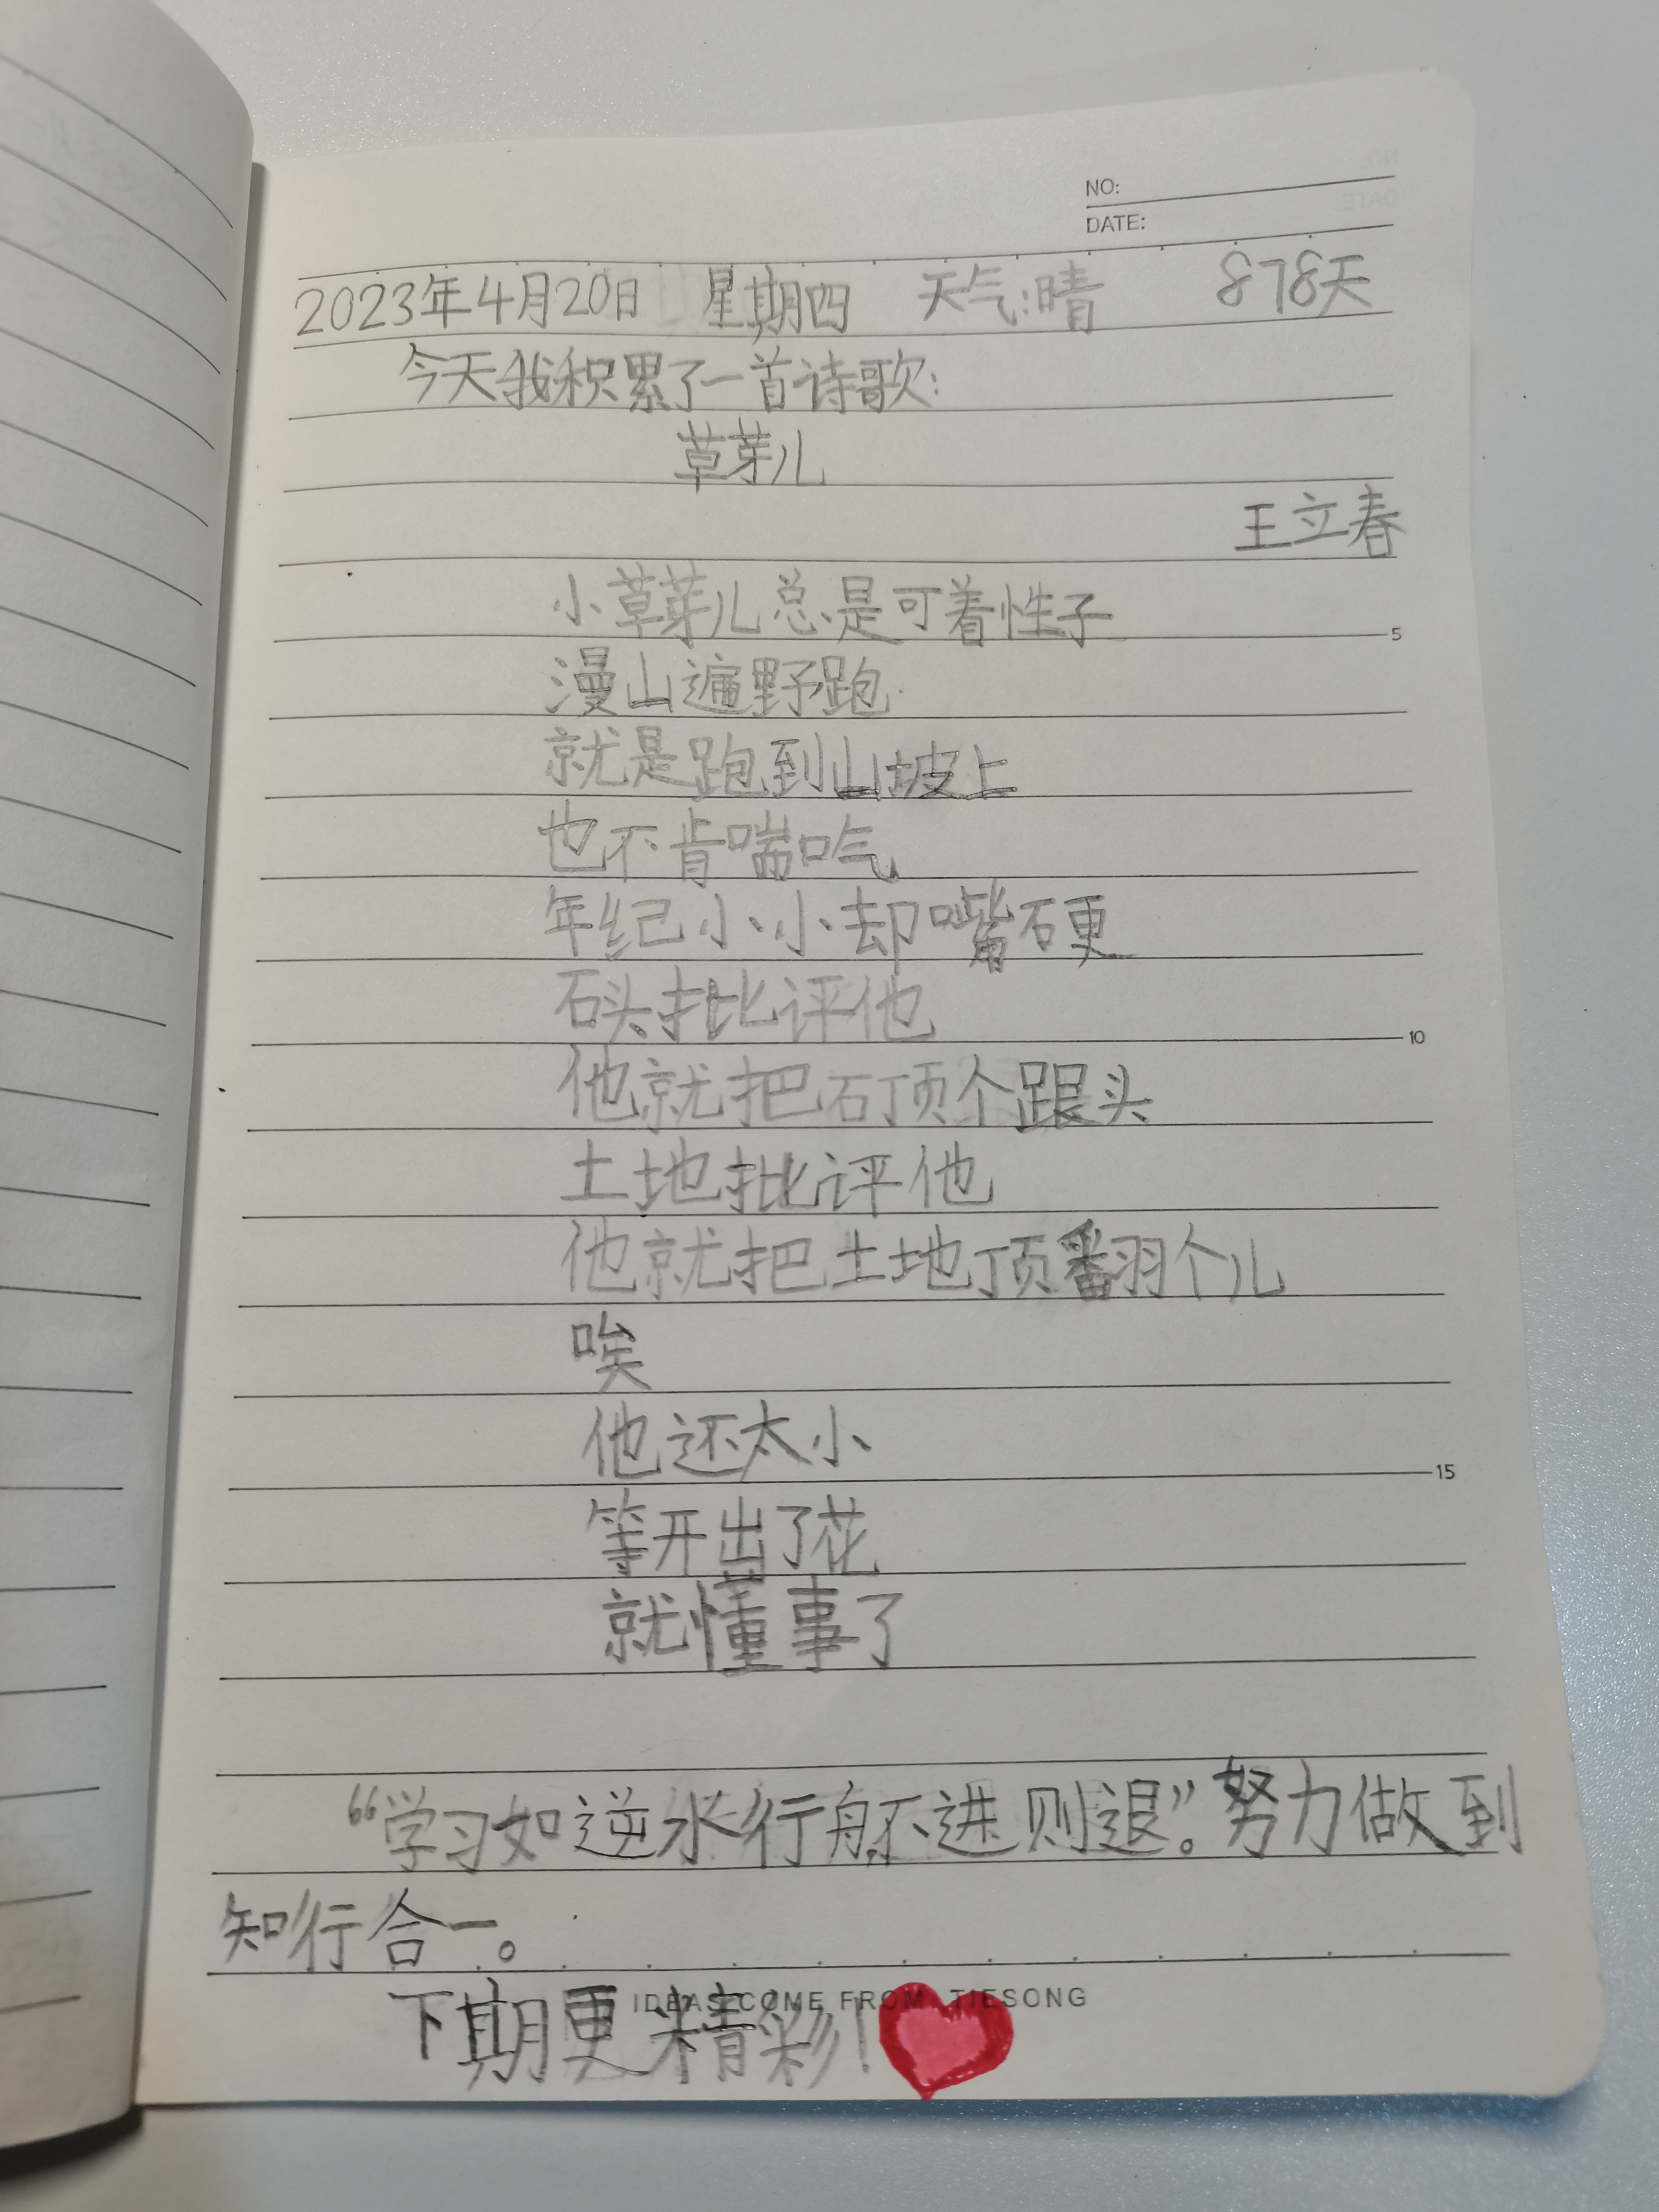 NO:
DATE:
2023年4月20日 星期四 天气:晴 878天
今天我积累了一首诗歌:
草芽儿
王立春
小草芽儿总是可着性子
5
漫山遍野跑
就是跑到山坡上
也不肯喘口气
年纪小小却嘴硬
石头批评他
10
他就把石顶个跟头
土地批评他
他就把土地顶翻个儿
唉
他还太小
15
等开出了花
就懂事了
“学习如逆水行舟不进则退”。努力做到
知行合一。
IDEAS COME FROM TIESONG
下期更精彩!